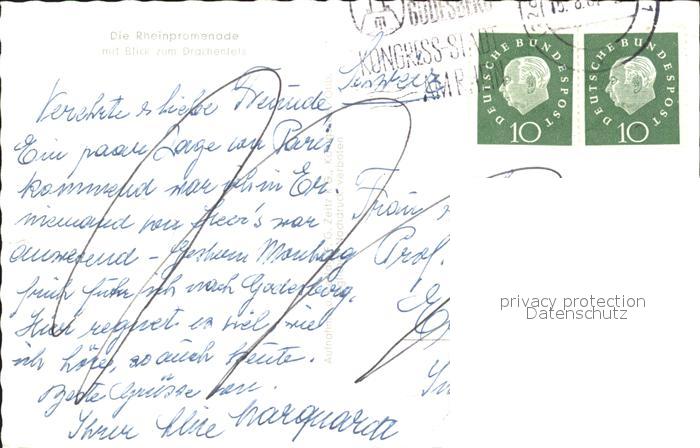 Die Rheinpromenade
mit Blick zum Drachenfels
GODESBERG
KONGRESS-STADT
AM RHEIN
DEUTSCHE BUNDESPOST
10
DEUTSCHE BUNDESPOST
10
Schweiz
Verehrte & liebe Freunde
Ein paar Tage von Paris
kommend war ich in
niemand von war
anwesend - Gestern Montag
früh fuhr ich nach Godesberg.
Hier regnet es viel, wie
ich höre, so auch heute.
Beste Grüsse von
Ihrer Marquardt
Frau
Prof.
Nachdruck verboten
privacy protection
Datenschutz